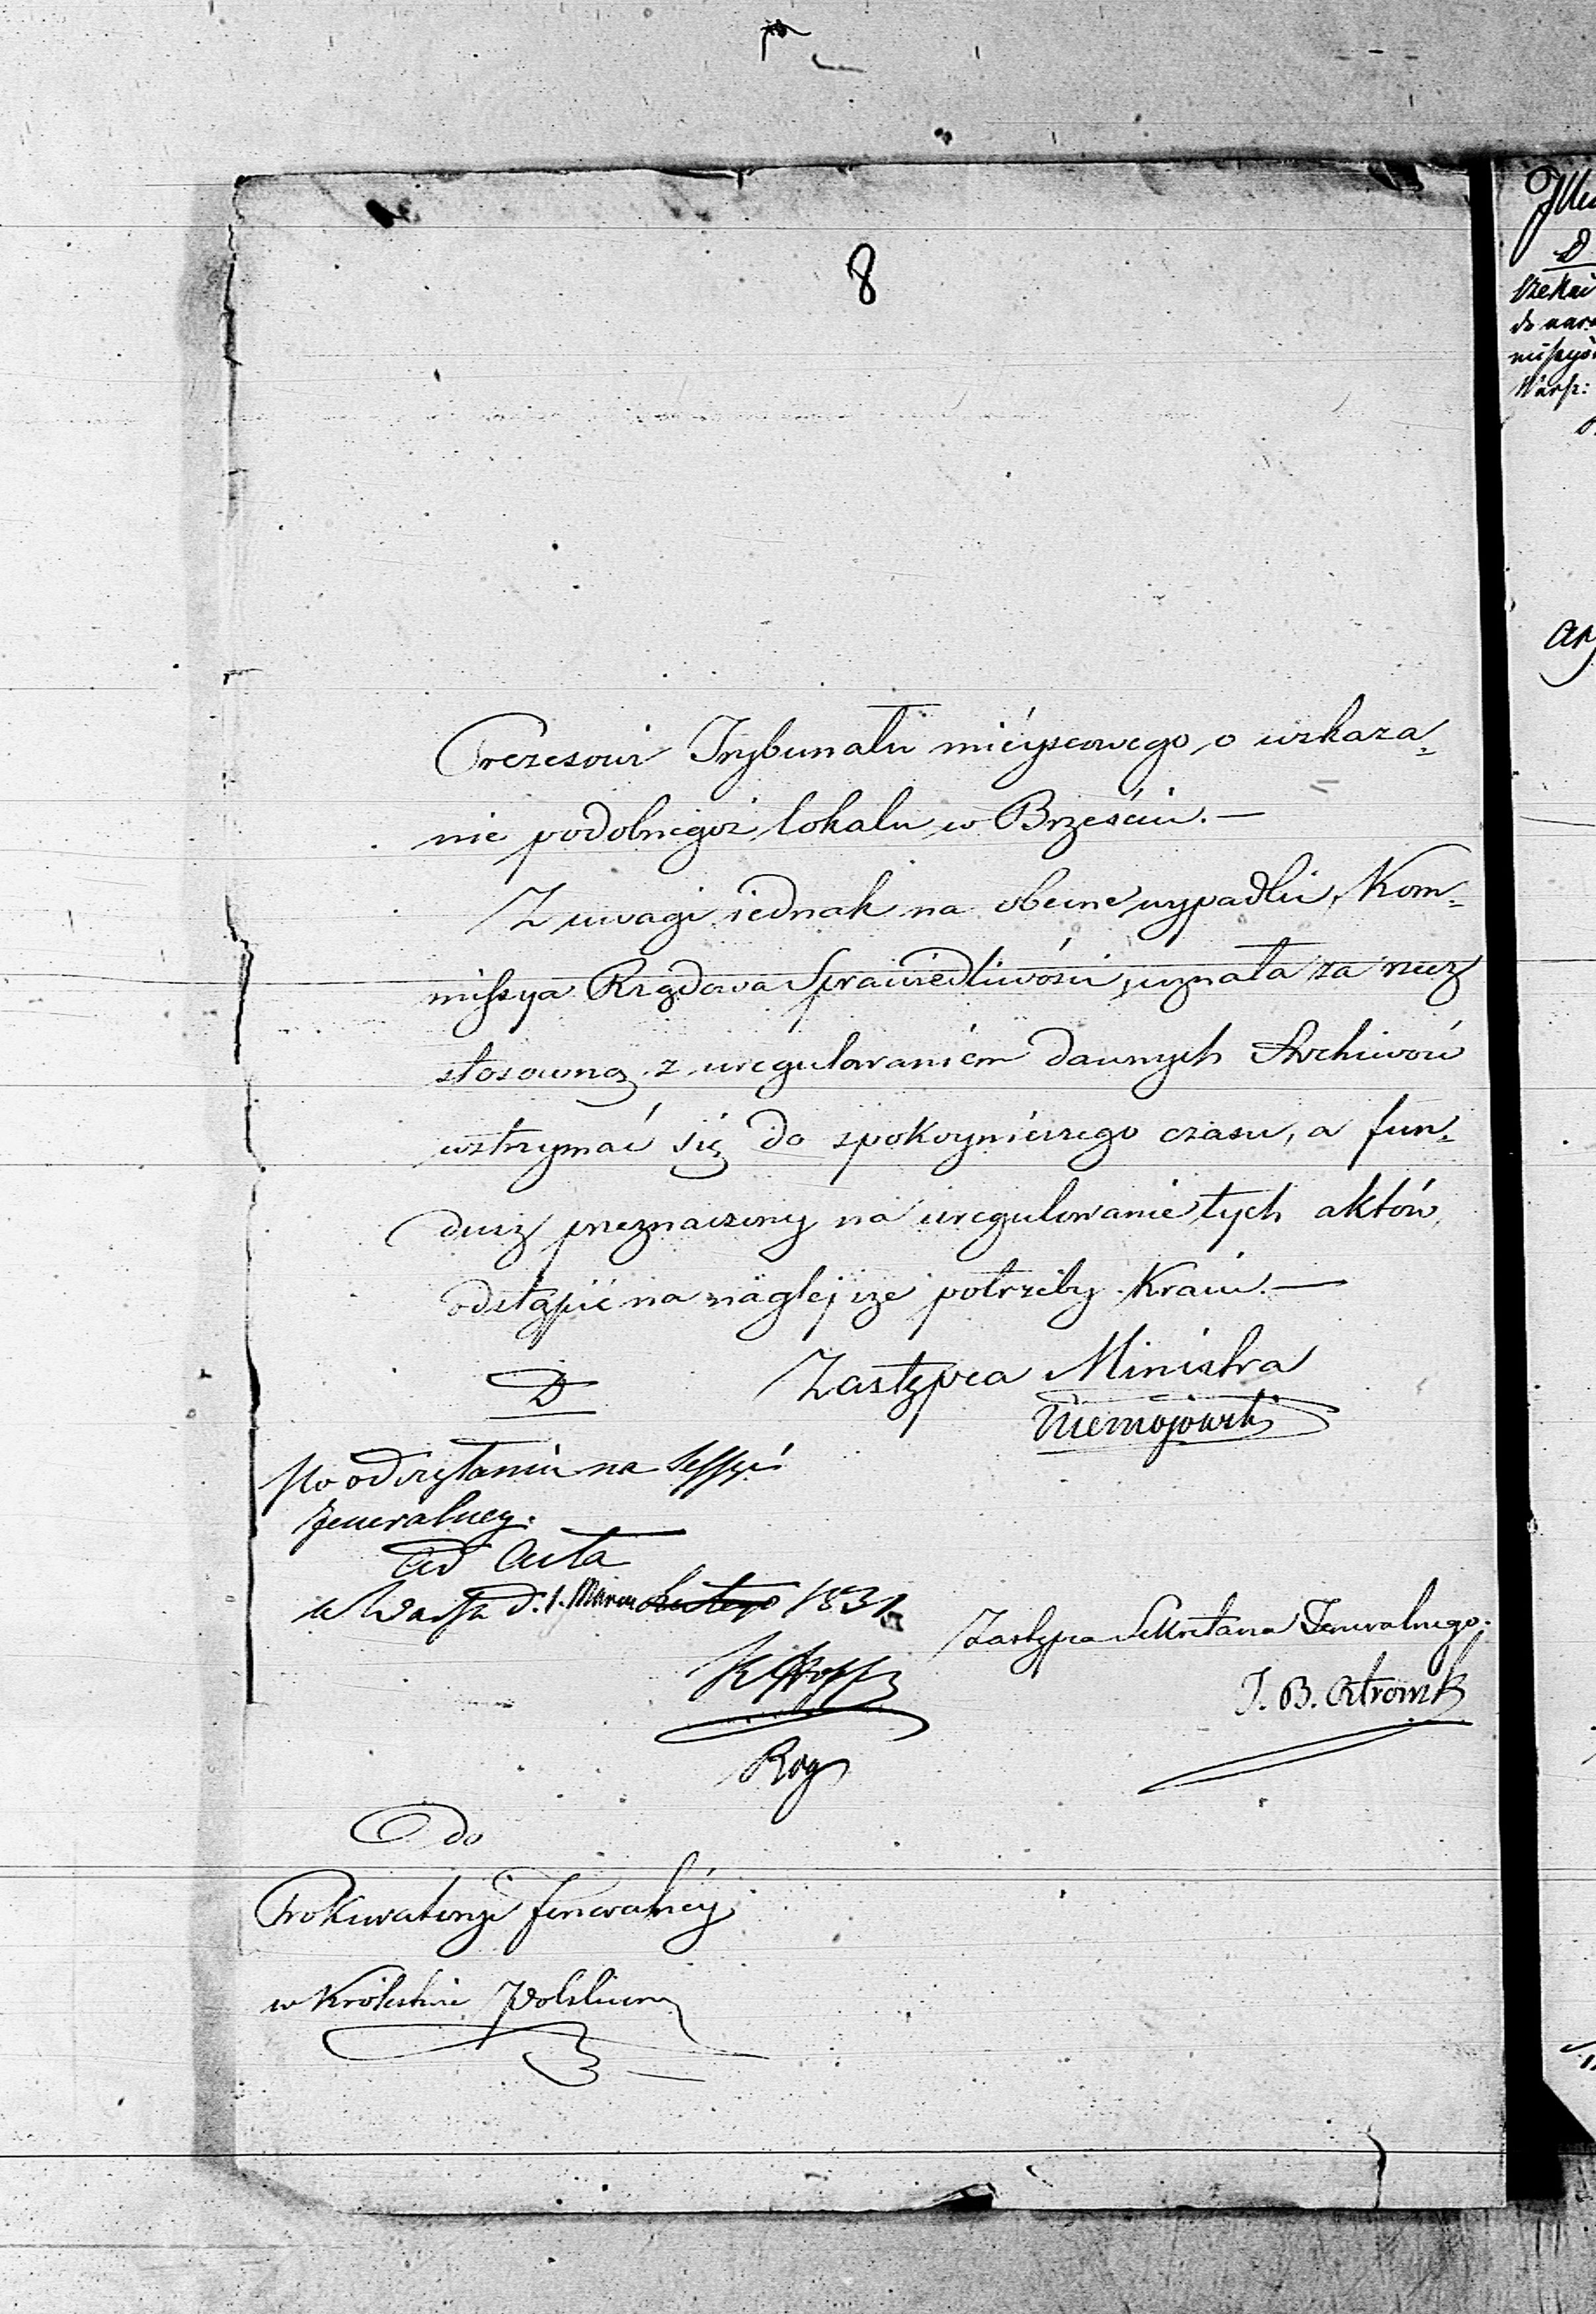 8
Prezesowi Trybunału mieyscowego, o wskaza=
nie podobnegoż lokalu w Brześciu. —
Z uwagi iednak na obecne wypadki, Kom=
missya Rządowa Sprawiedliwości, uznała za rzecz
stosowną z uregulowaniem dawnych Archiwów
wstrzymać się do spokoynieyszego czasu, a fun=
dusz przeznaczony na uregulowanie tych aktów,
odstąpić na naglejsze potrzeby Kraiu. —
D
Zastępca Ministra
Niemojowski
Po odczytaniu na Sessyi
Jeneralney.
Ad Acta
w Warsz d. 1. Marca Lutego 1831.
Zastępca Sekretarza Jeneralnego.
J. B. Ostrowsk
K Hoff
Rog
do
Prokuratoryi Jeneralnéy
w Królestwie Polskiem
D
do
Warsz: